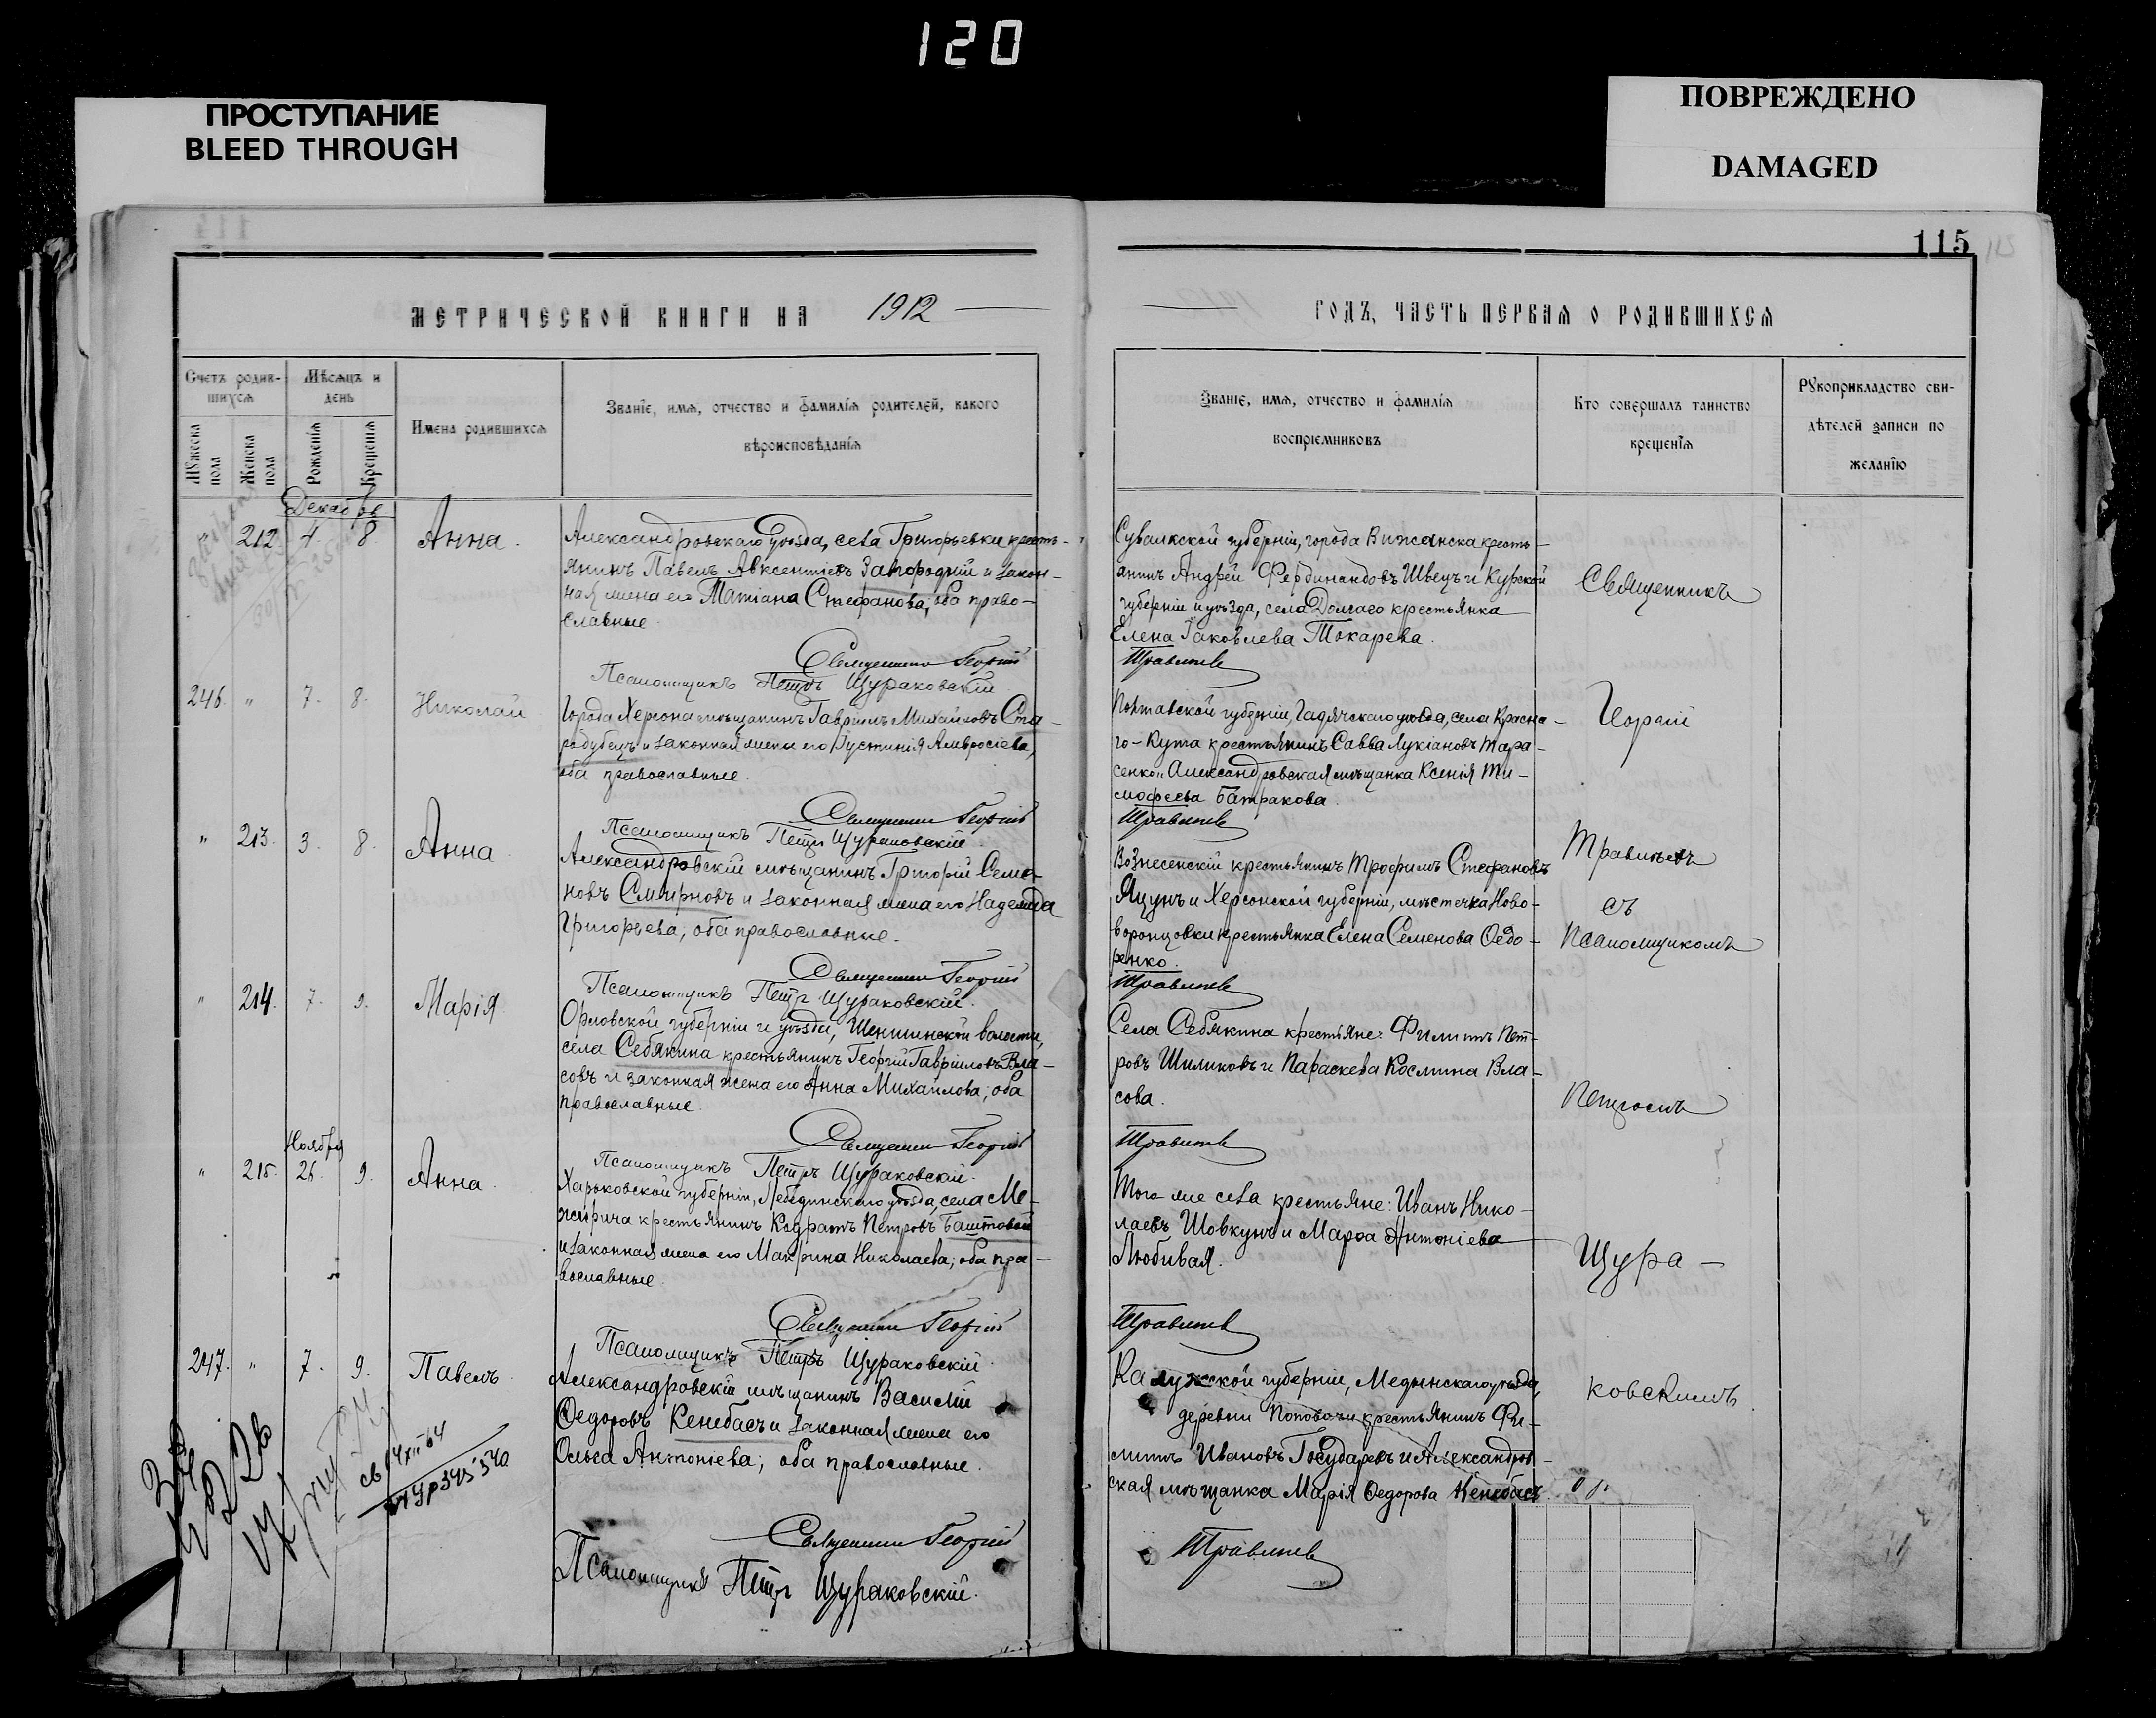 120
ПРОСТУПАНИЕ
BLEED THROUGH
ПОВРЕЖДЕНО
DAMAGED
115
МЕТРИЧЕСКОЙ КНИГИ НА 1912
ГОДЪ, ЧАСТЬ ПЕРВАЯ О РОДИВШИХСЯ
Счетъ родив-
шихся
Мужеска пола
Женска пола
Мѣсяцъ и
день
Рожденія
Крещенія
Имена родившихся
Званіе, имя, отчество и фамилія родителей, какого
вѣроисповѣданія
Званіе, имя, отчество и фамилія
воспріемниковъ
Кто совершалъ таинство
крещенія
Рукоприкладство сви-
дѣтелей записи по
желанію
Декабрь
" 212. 4. 8. Анна.
Александровскаго уѣзда, села Григорьевки кресть-
янинъ Павелъ Авксентіевъ Запорожній и закон-
ная жена его Татіана Стефанова; оба право-
славные.
Священникъ Георгій
Псаломщикъ Петръ Щураковскій
Сувалкской губерніи, города кресть-
янинъ Андрей Фердинандовъ Швецъ и Курской
губерніи и уѣзда, села Долгаго крестьянка
Елена Іаковлева Токарева.
246. " 7. 8. Николай
Города Херсона мѣщанинъ Гавріилъ Михайловъ Ста-
родубецъ и законная жена его Іустинія Амвросіева,
оба православные.
Священникъ Георгій
Псаломщикъ Петръ Щураковскій.
Полтавской губерніи, Гадячскаго уѣзда, села Красна-
го-Кута крестьянинъ Савва Лукіановъ Тара-
сенко и Александровская мѣщанка Ксенія Ти-
мофеева Батракова.
" 213. 3. 8. Анна
Александровскій мѣщанинъ Григорій Семе-
новъ Смирновъ и законная жена его Надежда
Григорьева; оба православные.
Священникъ Георгій
Псаломщикъ Петръ Щураковскій.
Вознесенскій крестьянинъ Трофимъ Стефановъ
Яцунъ и Херсонской губерніи, мѣстечка Ново-
воронцовки крестьянка Елена Семенова Ѳедо-
ренко.
" 214. 7. 9. Марія
Орловской губерніи и уѣзда, волости,
села Себякина крестьянинъ Георгій Гавріиловъ Вла-
совъ и законная жена его Анна Михаилова; оба
православные.
Священникъ Георгій
Псаломщикъ Петръ Щураковскій.
Села Себякина крестьяне: Филиппъ Пет-
ровъ Шиликовъ и Параскева Космина Вла-
сова.
Ноября
" 215. 26. 9. Анна.
Харьковской губерніи, Лебединскаго уѣзда, села Ме-
жирича крестьянинъ Кодратъ Петровъ Баштовой
и законная жена его Макрина Николаева; оба пра-
вославные.
Священникъ Георгій
Псаломщикъ Петръ Щураковскій.
Того же села крестьяне: Иванъ Нико-
лаевъ Шовкунъ и Марѳа Антоніева
Любивая.
247. " 7. 9. Павелъ.
Александровскій мѣщанинъ Василій
Ѳедоровъ Кенебасъ и законная жена его
Ольга Антоніева; оба православные.
Священникъ Георгій
Псаломщикъ Петръ Щураковскій.
Калужской губерніи, Медынскаго уѣзда,
деревни крестьянинъ Фи-
липпъ Ивановъ Государевъ и Александров-
ская мѣщанка Марія Ѳедорова Кенебасъ.
Священникъ
Георгій
съ
Псаломщикомъ
Петромъ
Щура-
ковскимъ.